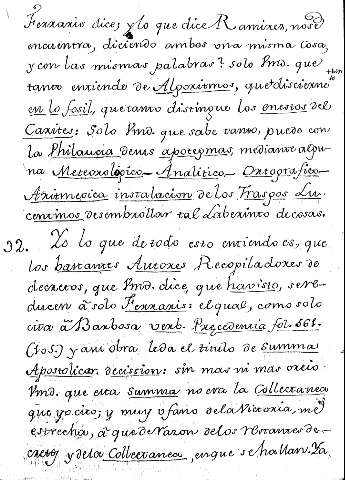 Ferraris dice; y lo que dice Ramirez, no se
encuentra, diciendo ambos una misma cosa,
y con las mismas palabras? solo Vmd. que
tanto entiende de Algoritmos, que discierne
en lo fosil, que tanto distingue los enesios del
Carites: Solo Vmd. que sabe tanto, puede con
la Philaucia de sus apotegmas, mediante algu-
na Meteorologico-Analitico-Ortografico-
Aritmetica instalacion de los Traspos Lu-
centinos desembrollar tal Laberinto de cosas.
32. Yo lo que de todo esto entiendo es, que
los bastantes Autores Recopiladores de
decretos, que Vmd. dice, que ha visto, se re-
ducen à solo Ferraris: el qual, como solo
cita à Barbosa verb. Precedencia fol. 561.
(105.) y a su obra le da el titulo de Summa
Apostolicar. decission: sin mas ni mas creio
Vmd. que esta Summa no era la Collectanea
que yo cito; y muy ufano de la Victoria, me
estrecha, à que de razon de los restantes de-
cretos y de la Collectanea, en que se hallan. Ya